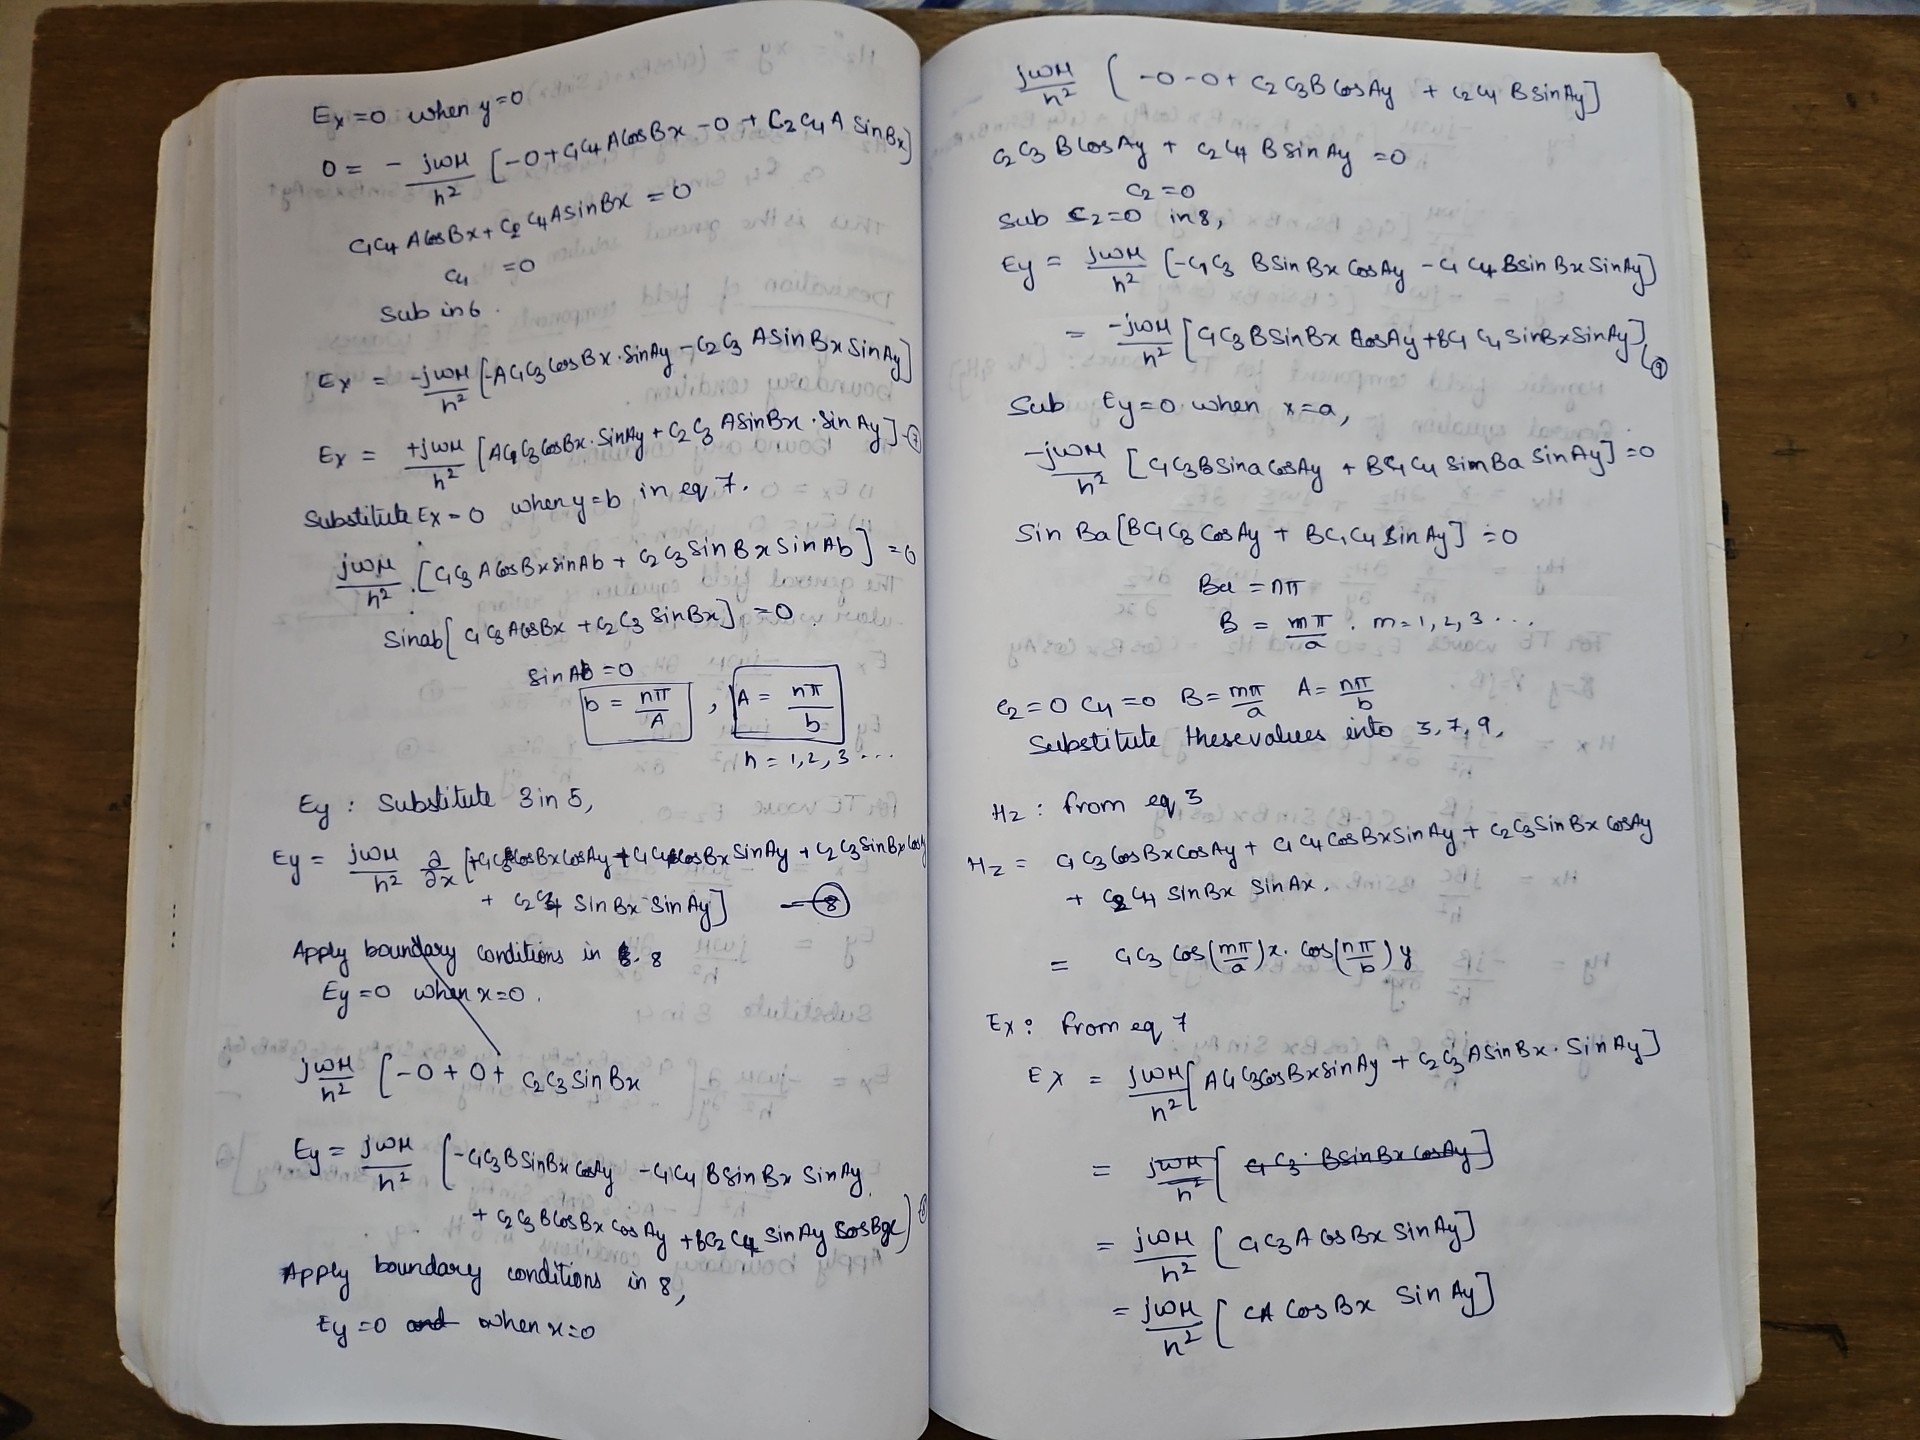 Ex=0 when y=0
0 = - jωμ/h² [-0+C1C4 ACosBx -0 + C2C4 A SinBx]
C1C4 ACosBx + C2C4ASinBx = 0
C4 =0
Sub in 6.
Ex = -jωμ/h² [-AC1C3CosBx.SinAy - C2C3 ASinBxSinAy]
Ex = +jωμ/h² [AC1C3CosBx.SinAy + C2C3 ASinBx.SinAy] - ⑦
Substitute Ex=0 when y=b in eq 7.
jωμ/h² . [C1C3 ACosBxSinAb + C2C3SinBxSinAb] = 0
Sinab[C1C3ACosBx + C2C3 SinBx] = 0.
SinAb = 0
b = nπ/A , A = nπ/b
n = 1,2,3 ...
Ey : Substitute 3 in 5,
Ey = jωμ/h² ∂/∂x [+C1C3CosBxCosAy + C1C4CosBxSinAy + C2C3SinBxCosAy
+ C2C4 SinBx SinAy] — ⑧
Apply boundary conditions in 8
Ey=0 when x=0.
jωμ/h² [-0 + 0 + C2C3SinBx
Ey = jωμ/h² [-C1C3BSinBxCosAy - C1C4 BSinBx SinAy
+ C2C3BCosBx CosAy + BC2C4 SinAy CosBx]
Apply boundary conditions in 8,
Ey=0 and when x=0
jωμ/h² [-0-0+ C2C3BCosAy + C2C4 BSinAy]
C2C3 BCosAy + C2C4 BSinAy =0
C2=0
Sub C2=0 in 8,
Ey = jωμ/h² [-C1C3 BSinBxCosAy - C1C4BSinBxSinAy]
= -jωμ/h² [C1C3BSinBx CosAy + BC1C4SinBxSinAy] ⑨
Sub Ey=0 when x=a,
-jωμ/h² [C1C3BSinaCosAy + BC1C4 SinBa SinAy] =0
Sin Ba[BC1C3CosAy + BC1C4SinAy] =0
Ba = nπ
B = mπ/a . m=1,2,3 ...
C2=0 C4=0 B= mπ/a A= nπ/b
Substitute these values into 3,7,9,
Hz : from eq 3
Hz = C1C3CosBxCosAy + C1C4CosBxSinAy + C2C3SinBxCosAy
+ C2C4 SinBx SinAx.
= C1C3 Cos(mπ/a)x. Cos(nπ/b)y
Ex : From eq 7
Ex = jωμ/h² [AC1C3CosBxSinAy + C2C3ASinBx.SinAy]
= jωμ/h² [C1C3.BSinBxCosAy]
= jωμ/h² [C1C3A CosBx SinAy]
= jωμ/h² [CA CosBx SinAy]